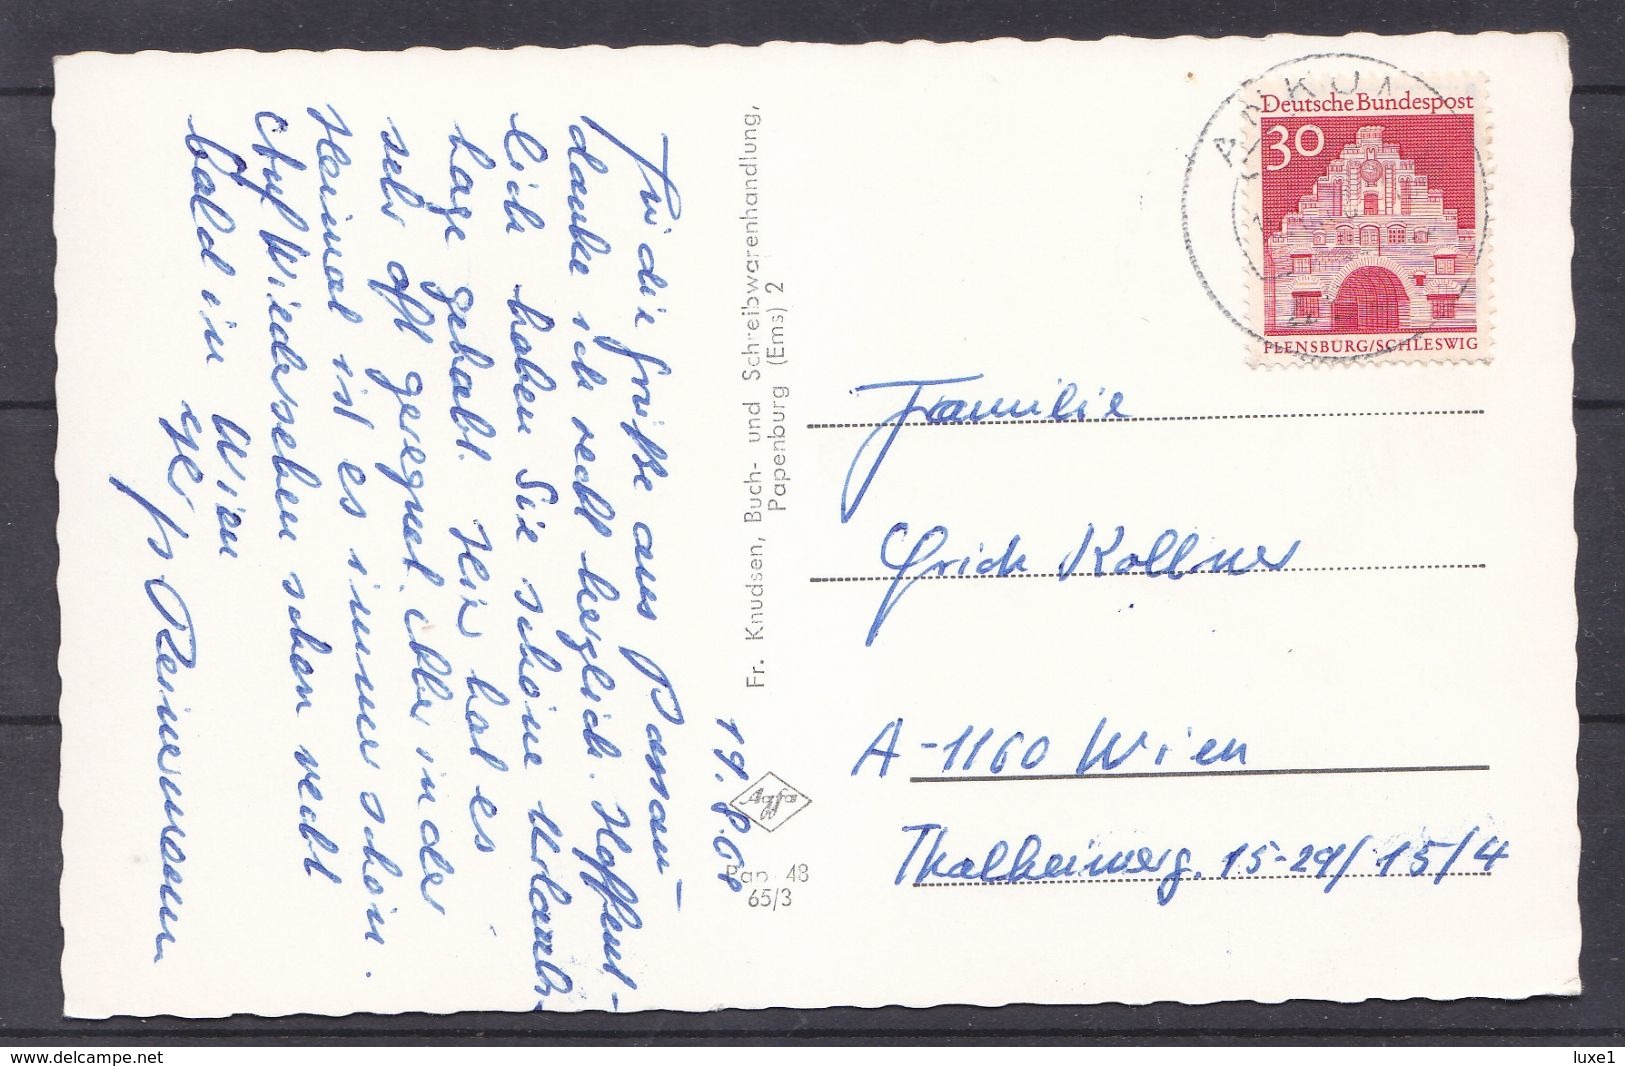 19.8.68
Für die Grüße aus Passau
danke ich recht herzlich. Hoffent-
lich haben Sie schöne Urlaubs-
tage gehabt. Hier hat es
sehr oft geregnet, aber in der
Heimat ist es immer schön.
Auf Wiedersehen schon recht
bald in Wien
Reinermann
Fr. Knudsen, Buch- und Schreibwarenhandlung,
Papenburg (Ems) 2
Agfa
Pap 48
65/3
ANKUM
Deutsche Bundespost
30
FLENSBURG/SCHLESWIG
Familie
Erich Kollner
A-1160 Wien
Thalheimerg. 15-29/15/4
www.delcampe.net
luxe1